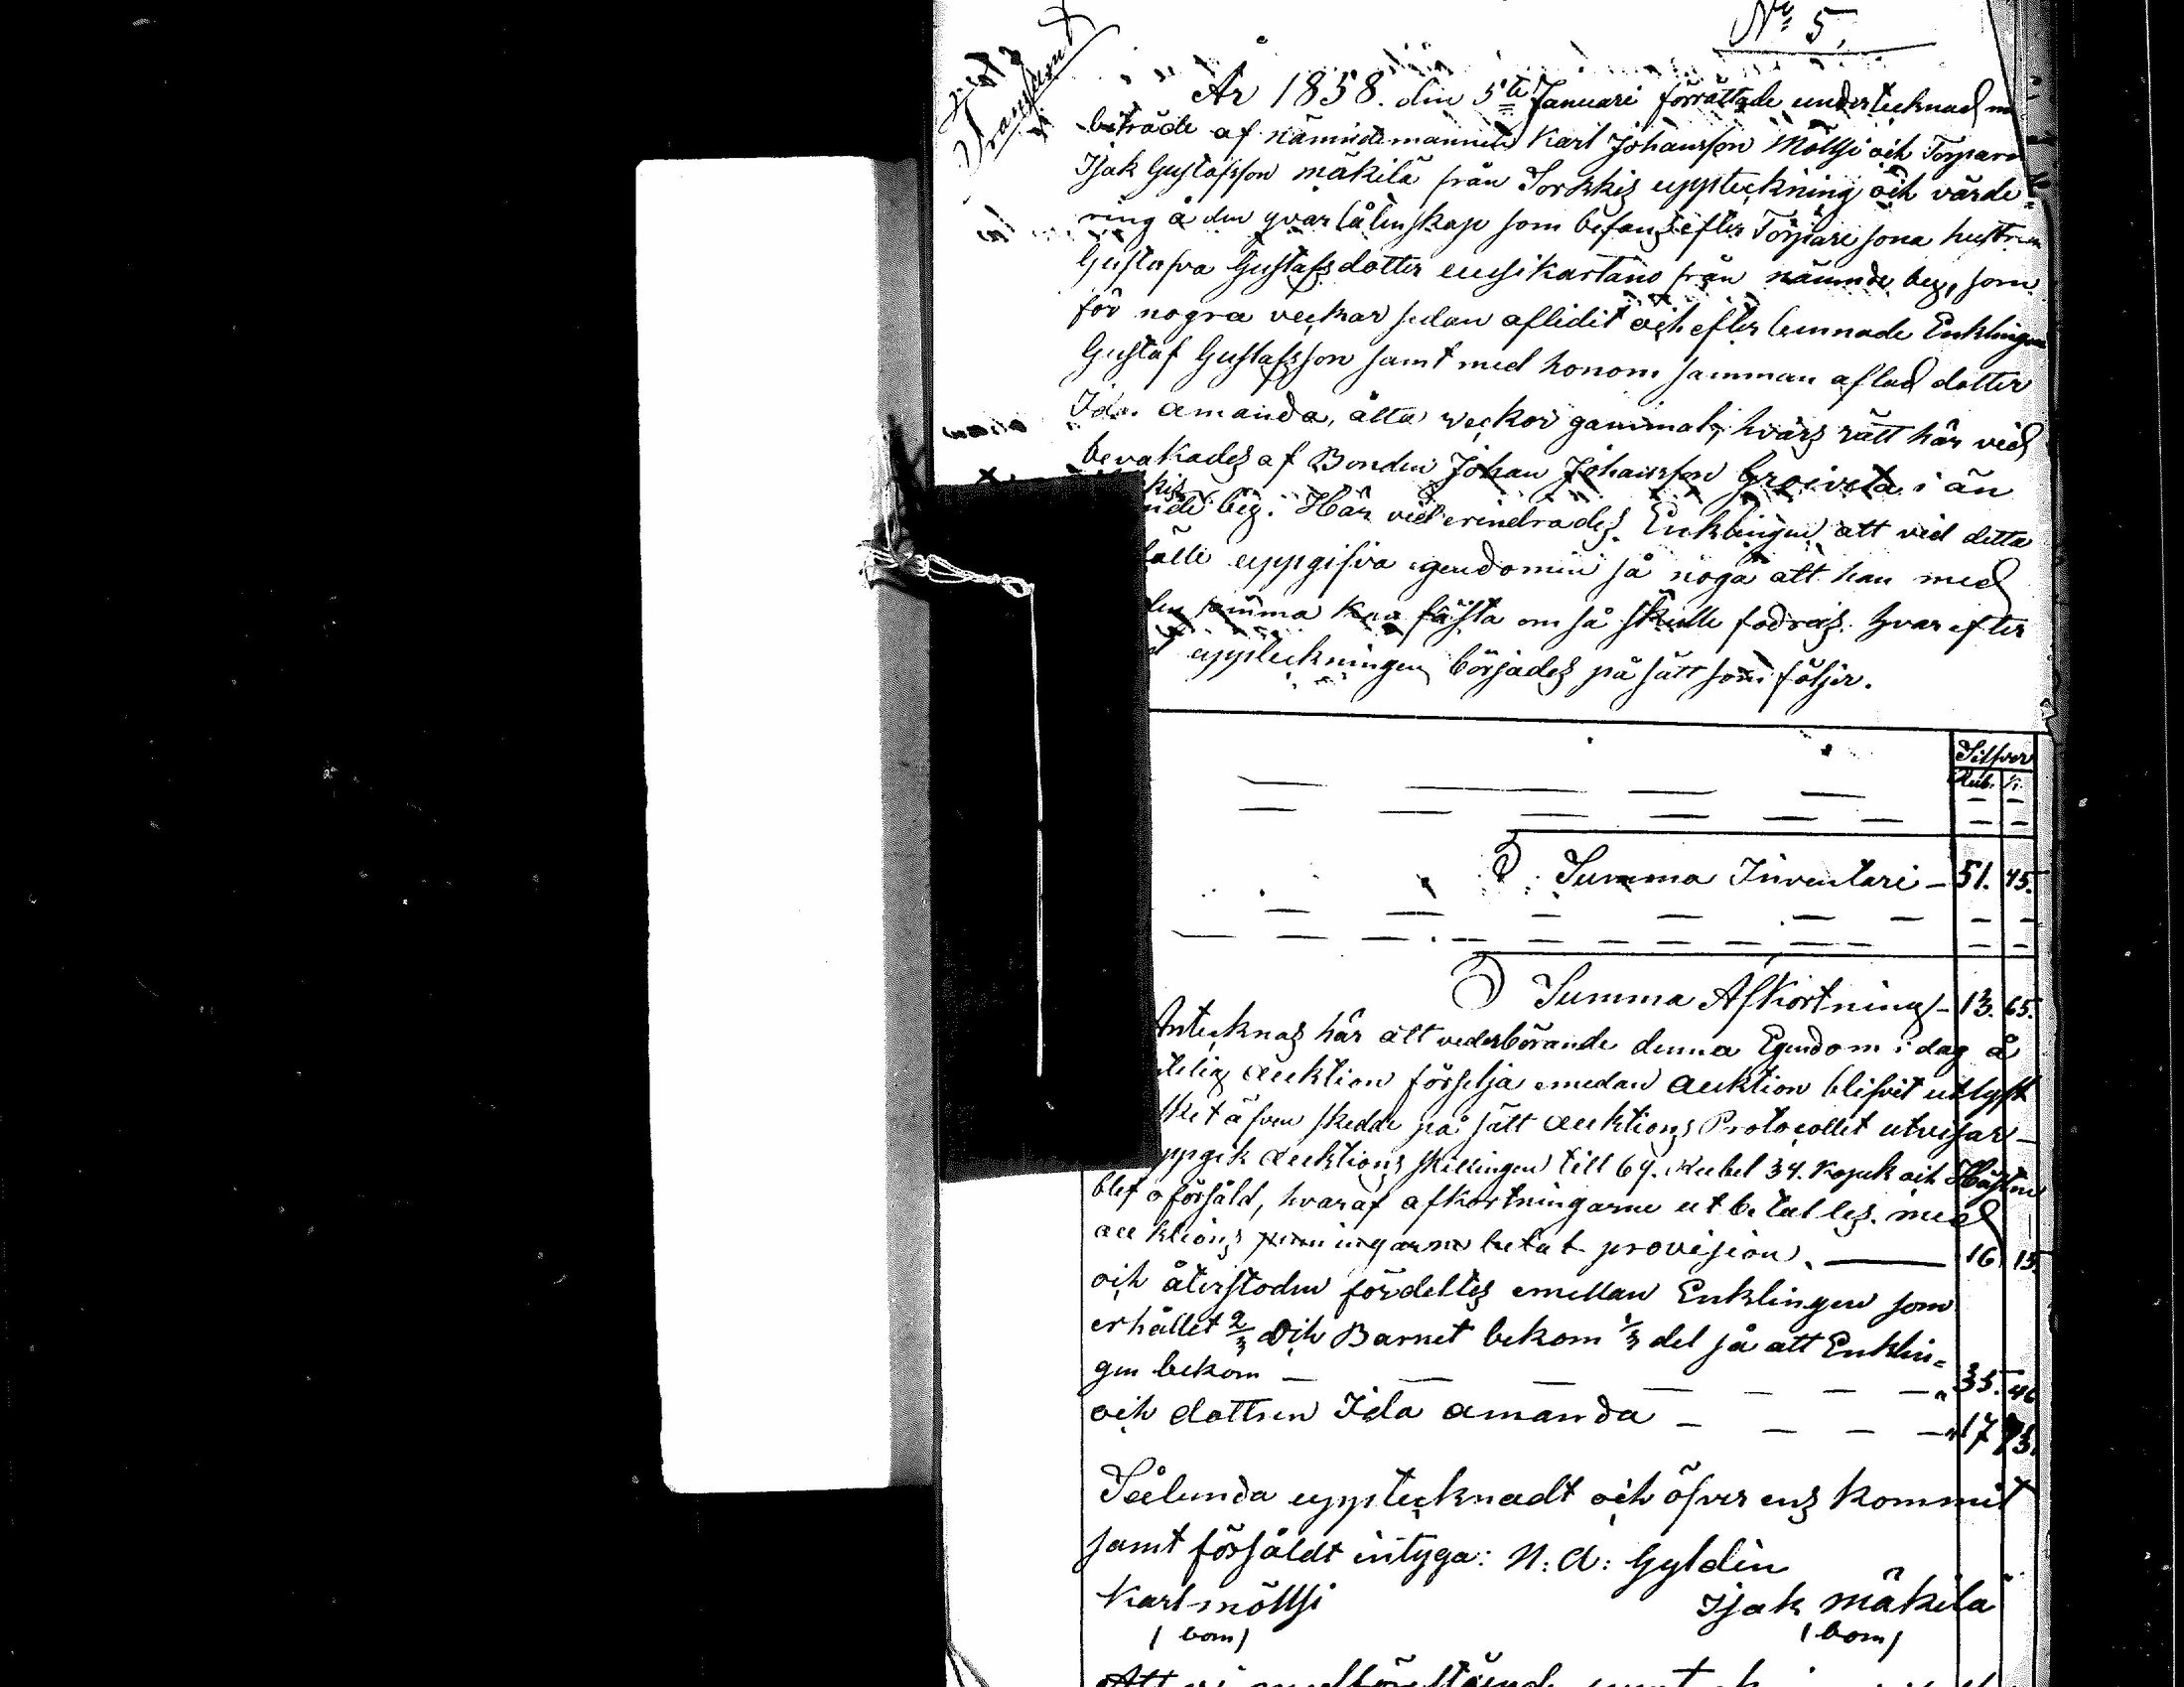 N<sup>o</sup> 5.
År 1858. den 5te Januari förrättade undertecknad m
biträde af nämndemannen Karl Johansson Möllsi och Torparn
Isak Gustafsson mäkilä från Sorkkis uppteckning och värde=
ring å den qvarlåtenskap som befans efter Torpare sona hustrun
Gustafva Gustafsdotter uusikartano från nämnde by, som
för nogra veckar sedan aflidit och efter lemnade Enklingen
Gustaf Gustafsson samt med honom samman aflad dotter
Ida amanda, åtta veckor gammal, hvars rätt här vid
bevakades af Bonden Johan Johansson Greivelä i än
kis
nde by. Här vid erindrades Enklingen att vid detta
älle uppgifva egendomen så noga att han med
den samma kan fästa om så skulle fodras. hvar efter
uppteckningen börjades på sätt som följer.
Silfver
Rub. k.
Summa Inventari - 51. 45.
Summa Afkortning - 13. 65.
Antecknas här att vederbörande denna Egendom i dag å
telig auktion förselja emedan auktion blifvit utlyst
ket äfven skedde på sätt auktions Protocollet utvisar -
ppgik auktions skillingen till 69. Rubel 34. Kopek och Hästen
blef oförsåld, hvaraf afkortningarne utbetaltes med
auktions penningarne betat provision. 16. 15.
och återstoden fördeltes emellan Enklingen som
erhållet 2/3 och Barnet bekom 1/3 del så att Enklin=
gen bekom - - - - - - - " 35. 46
och dottren Ida amanda - - - - " 17 73.
Sålunda upptecknadt och öfver ens kommit
samt försåldt intyga: N: A: Gyldén
Karl möllsi Isak mäkilä
(bom) (bom)